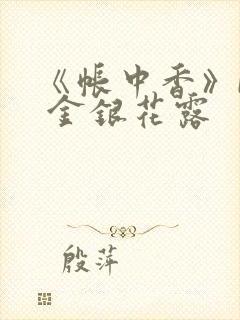 《帐中香》
金银花露
殷萍